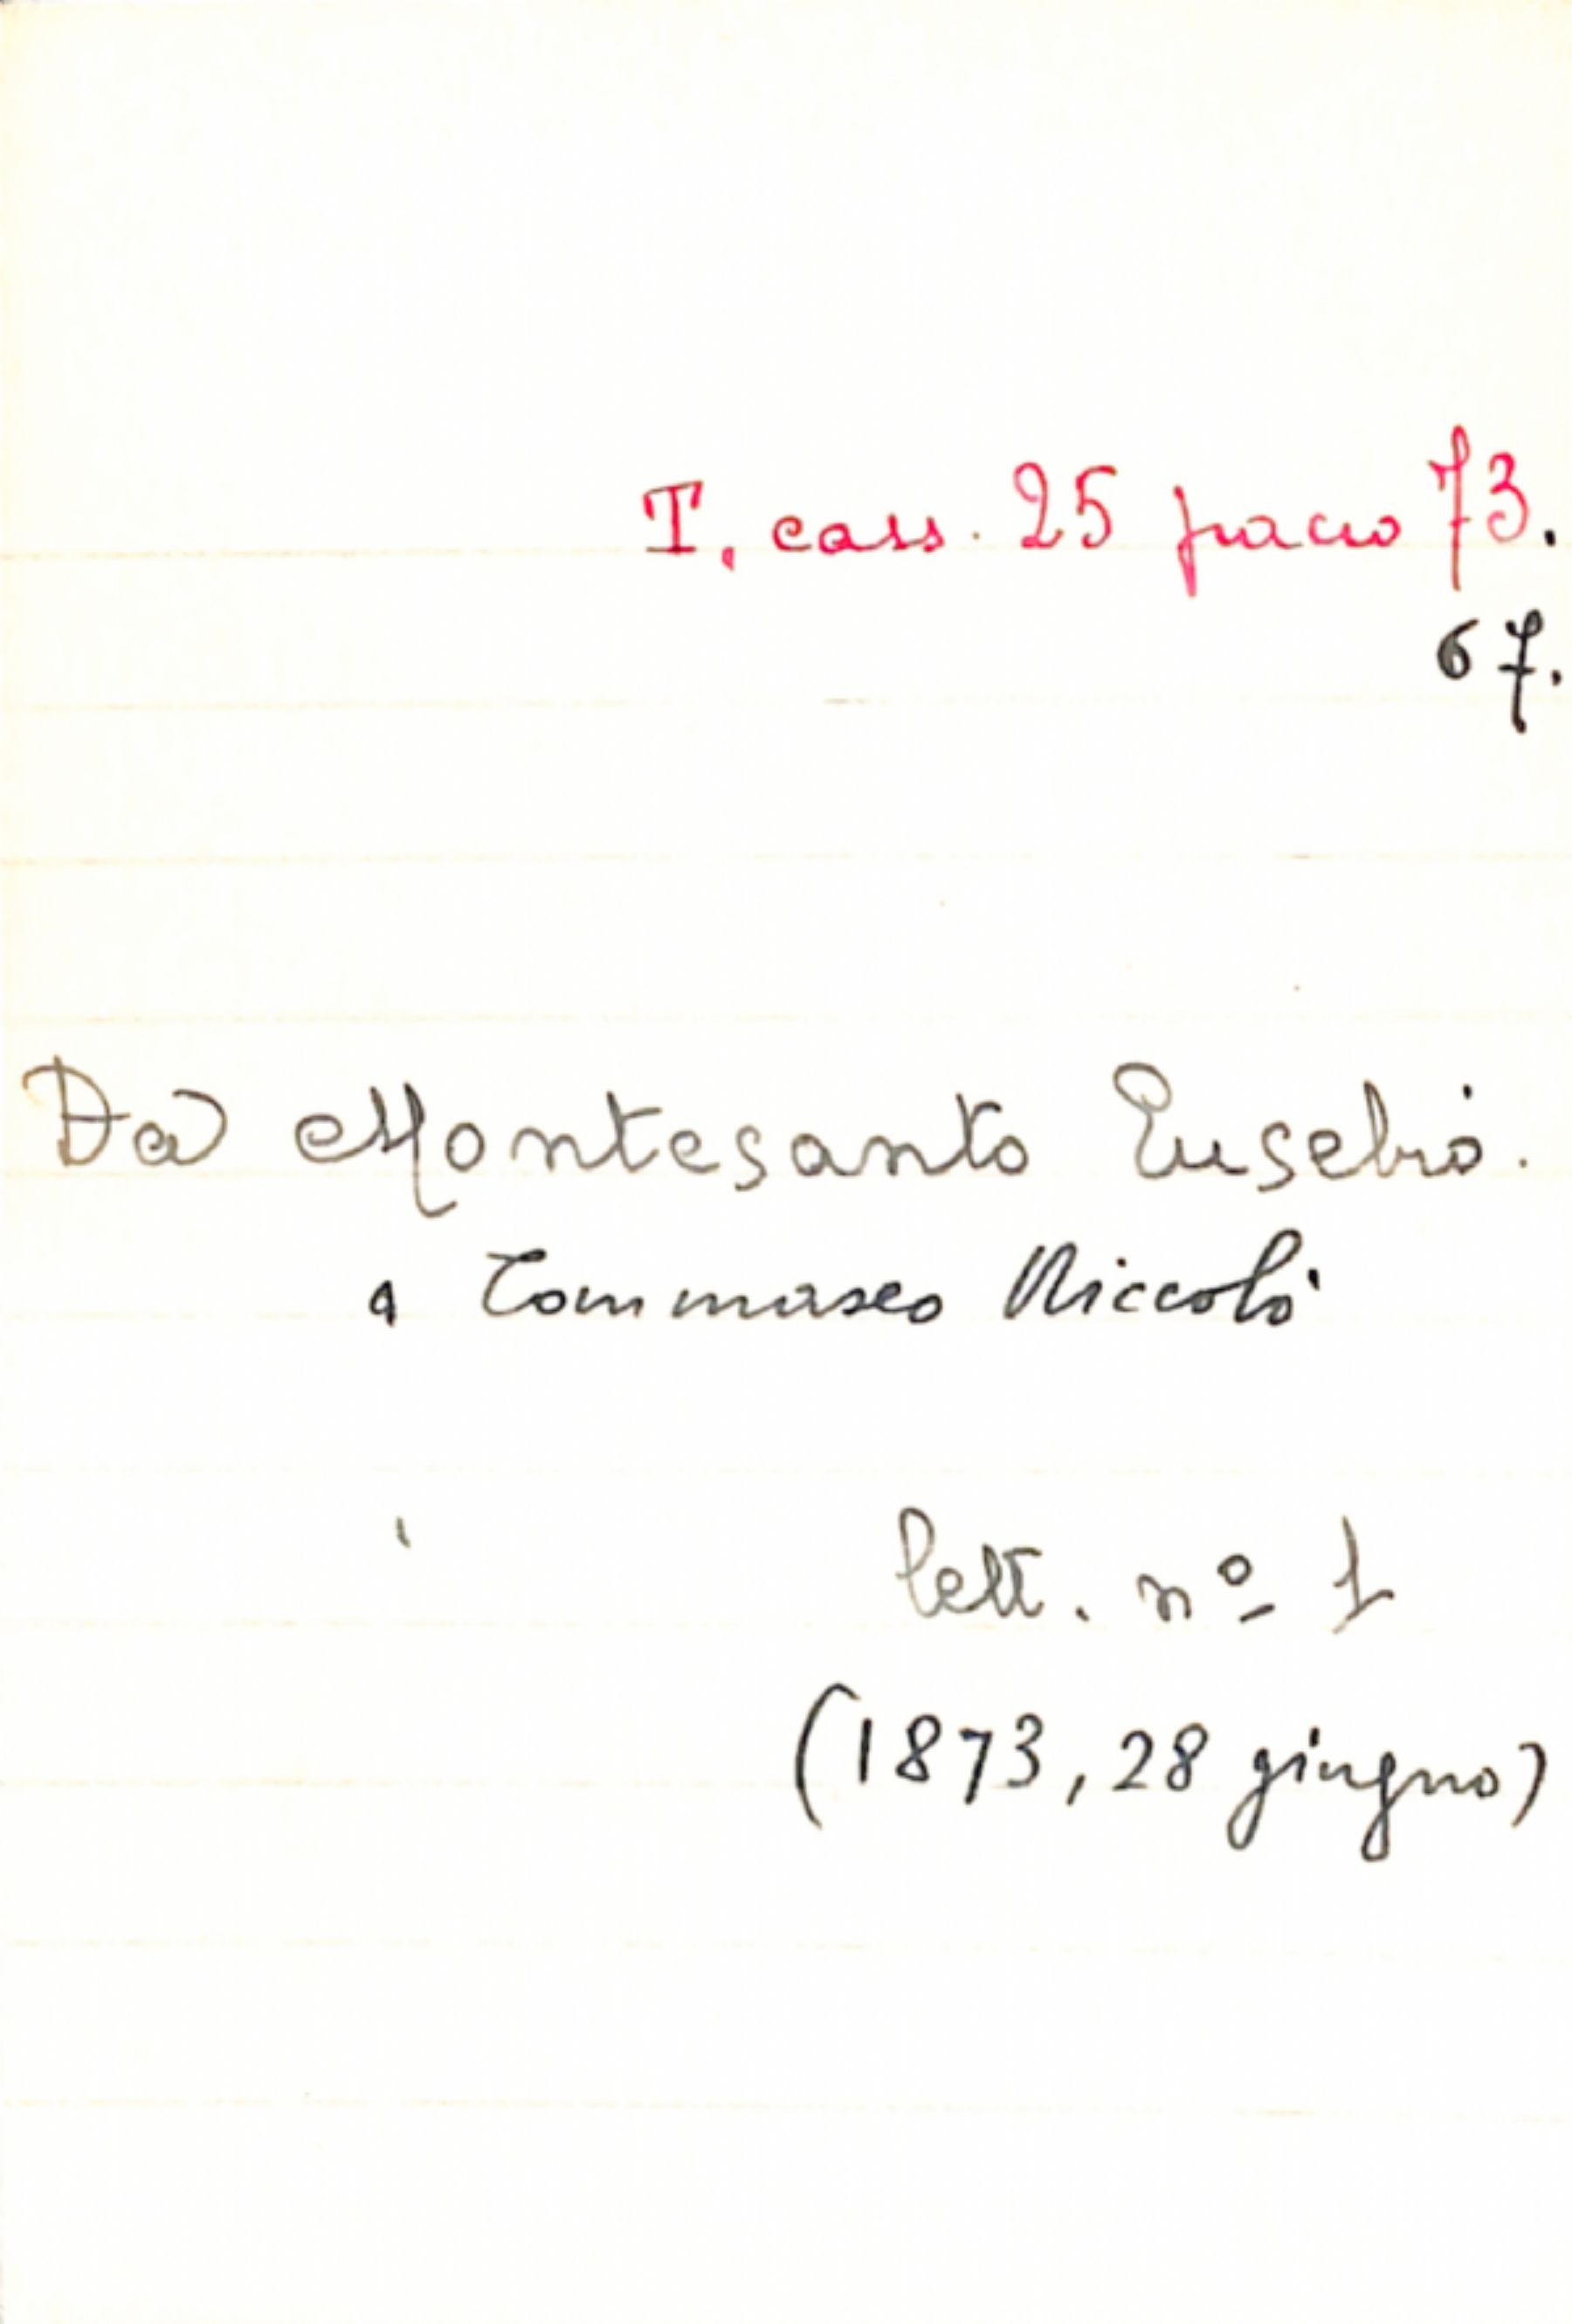 T. cass. 25 pacco 73.
67.
Da Montesanto Eusebio.
a Tommaseo Niccolò
lett. nº 1
(1873, 28 giugno)